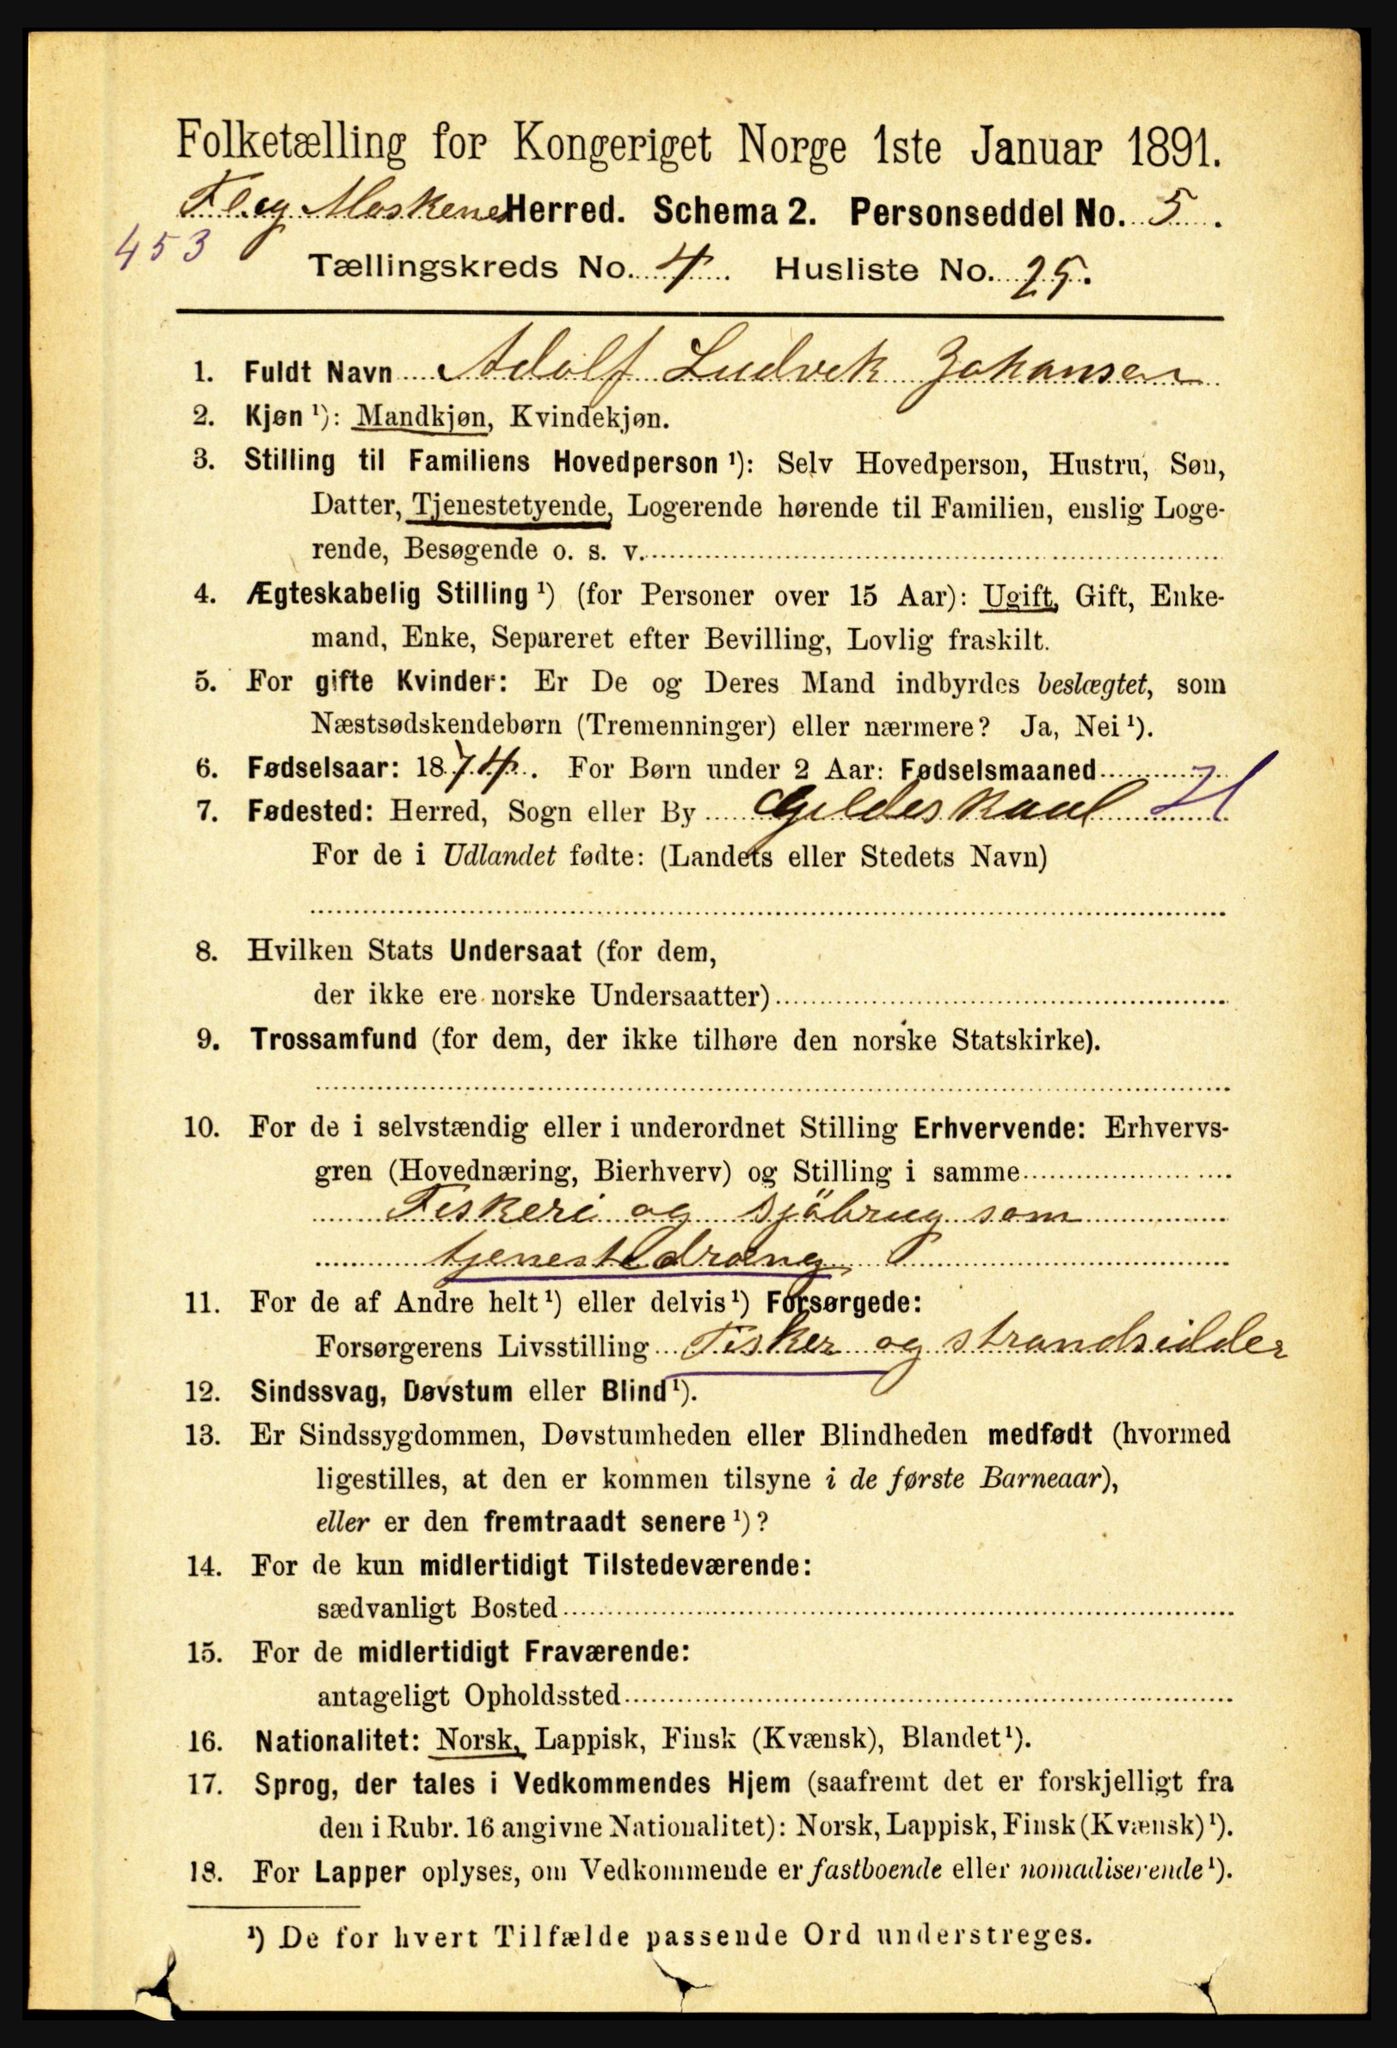 Folketælling for Kongeriget Norge 1ste Januar 1891.
Fl. og Moskenes Herred. Schema 2. Personseddel No. 5.
453
Tællingskreds No. 4. Husliste No. 25.
1. Fuldt Navn Adolf Ludvik Johansen
2. Kjøn ¹): Mandkjøn, Kvindekjøn.
3. Stilling til Familiens Hovedperson ¹): Selv Hovedperson, Hustru, Søn,
Datter, Tjenestetyende, Logerende hørende til Familien, enslig Loge-
rende, Besøgende o. s. v.
4. Ægteskabelig Stilling ¹) (for Personer over 15 Aar): Ugift, Gift, Enke-
mand, Enke, Separeret efter Bevilling, Lovlig fraskilt.
5. For gifte Kvinder: Er De og Deres Mand indbyrdes beslægtet, som
Næstsødskendebørn (Tremenninger) eller nærmere? Ja, Nei ¹).
6. Fødselsaar: 1874. For Børn under 2 Aar: Fødselsmaaned
7. Fødested: Herred, Sogn eller By Gildeskaal H
For de i Udlandet fødte: (Landets eller Stedets Navn)
8. Hvilken Stats Undersaat (for dem,
der ikke ere norske Undersaatter)
9. Trossamfund (for dem, der ikke tilhøre den norske Statskirke).
10. For de i selvstændig eller i underordnet Stilling Erhvervende: Erhvervs-
gren (Hovednæring, Bierhverv) og Stilling i samme
Fiskeri og sjöbrug som
tjenestedræng
11. For de af Andre helt ¹) eller delvis ¹) Forsørgede:
Forsørgerens Livsstilling Fisker og strandsidder
12. Sindssvag, Døvstum eller Blind ¹).
13. Er Sindssygdommen, Døvstumheden eller Blindheden medfødt (hvormed
ligestilles, at den er kommen tilsyne i de første Barneaar),
eller er den fremtraadt senere ¹)?
14. For de kun midlertidigt Tilstedeværende:
sædvanligt Bosted
15. For de midlertidigt Fraværende:
antageligt Opholdssted
16. Nationalitet: Norsk, Lappisk, Finsk (Kvænsk), Blandet ¹).
17. Sprog, der tales i Vedkommendes Hjem (saafremt det er forskjelligt fra
den i Rubr. 16 angivne Nationalitet): Norsk, Lappisk, Finsk (Kvænsk) ¹).
18. For Lapper oplyses, om Vedkommende er fastboende eller nomadiserende ¹).
¹) De for hvert Tilfælde passende Ord understreges.